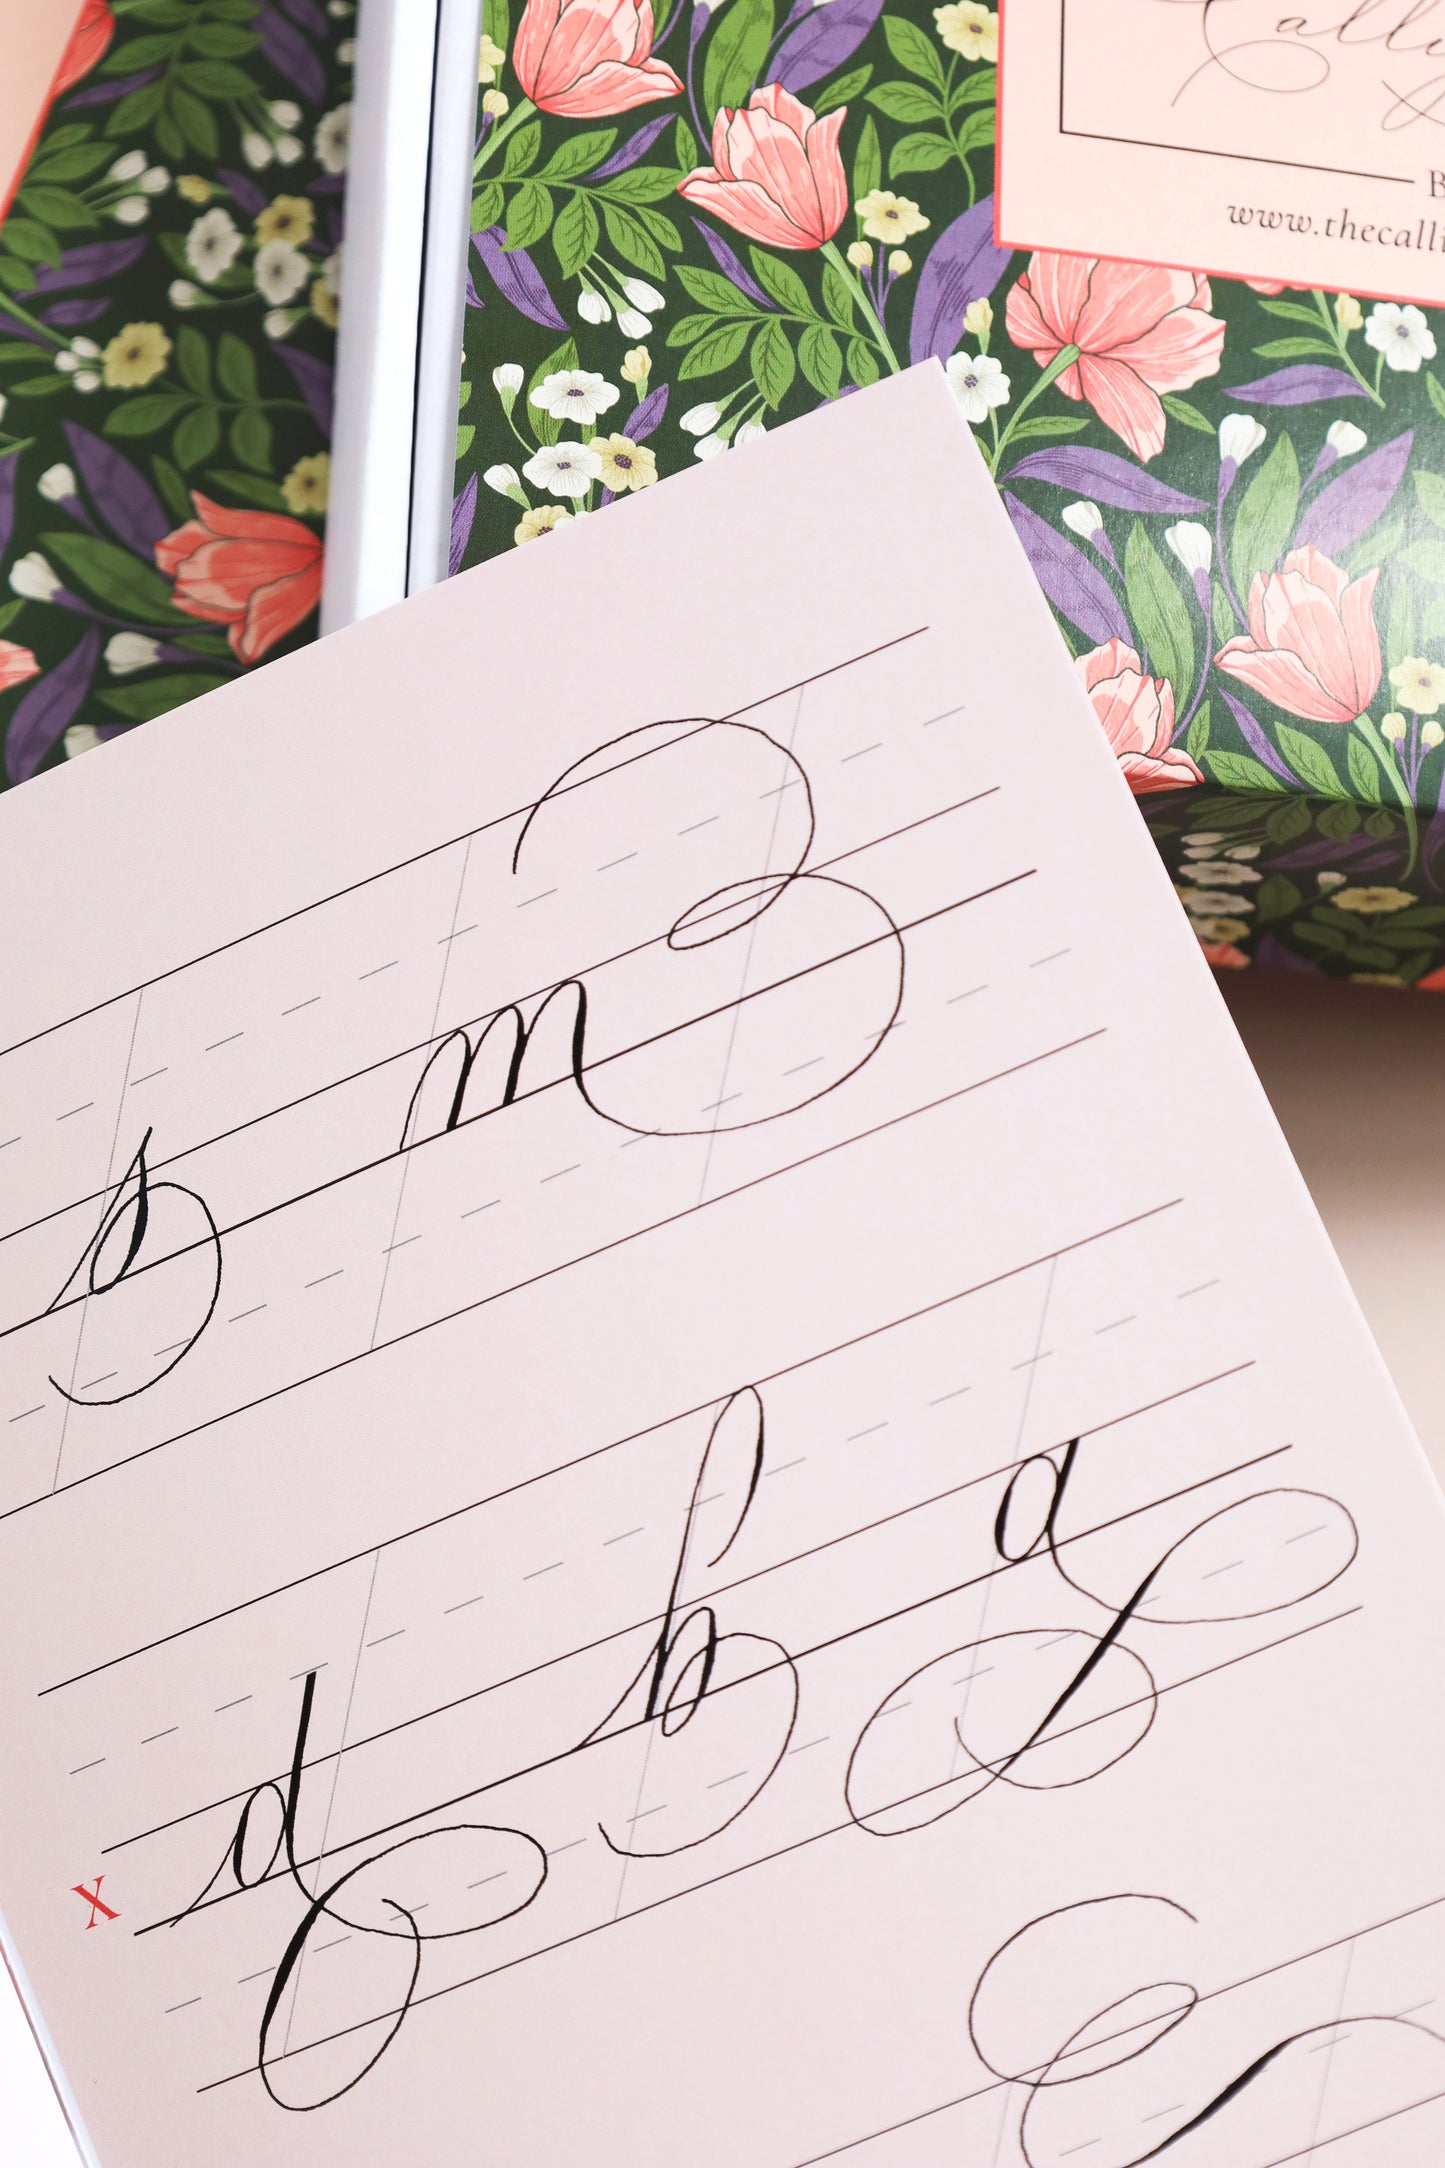 Call
B
www.thecalli
s m
x d h a